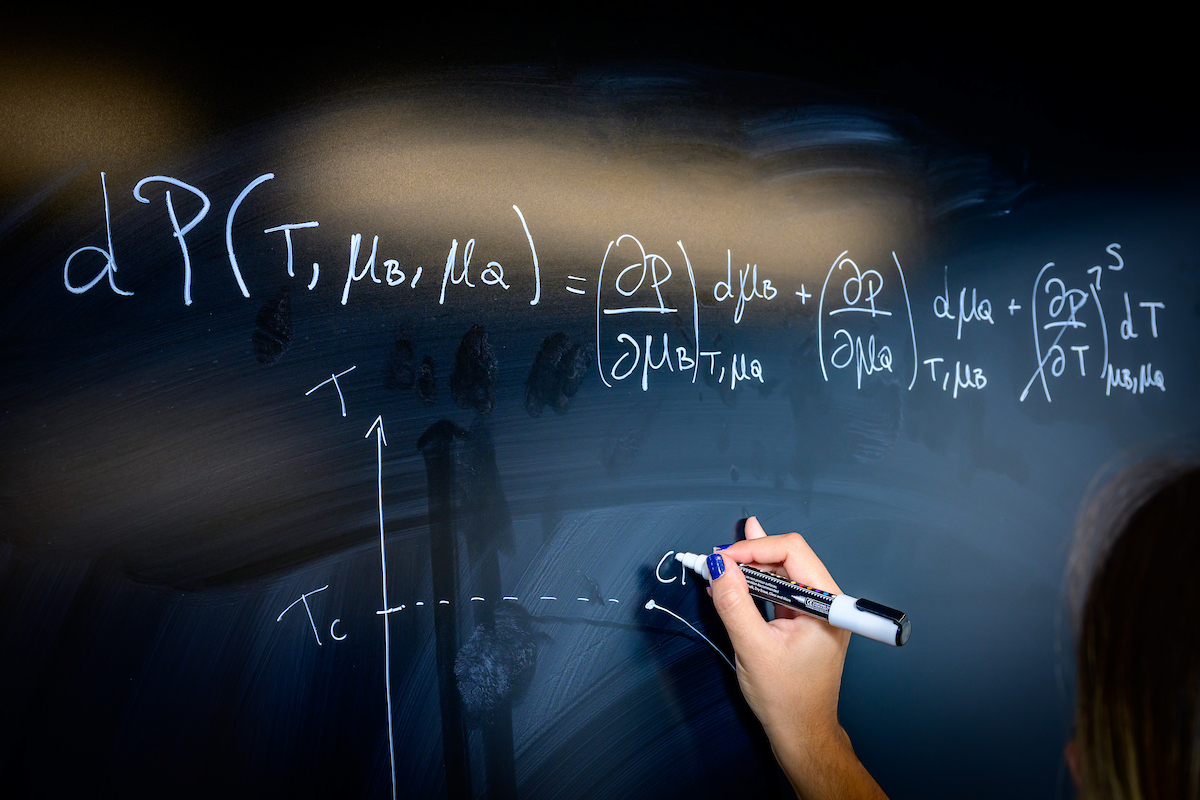 dP(T, μB, μQ) = (∂P/∂μB)T,μQ dμB + (∂P/∂μQ)T,μB dμQ + (∂P/∂T)μB,μQ dT
S
T
C
Tc